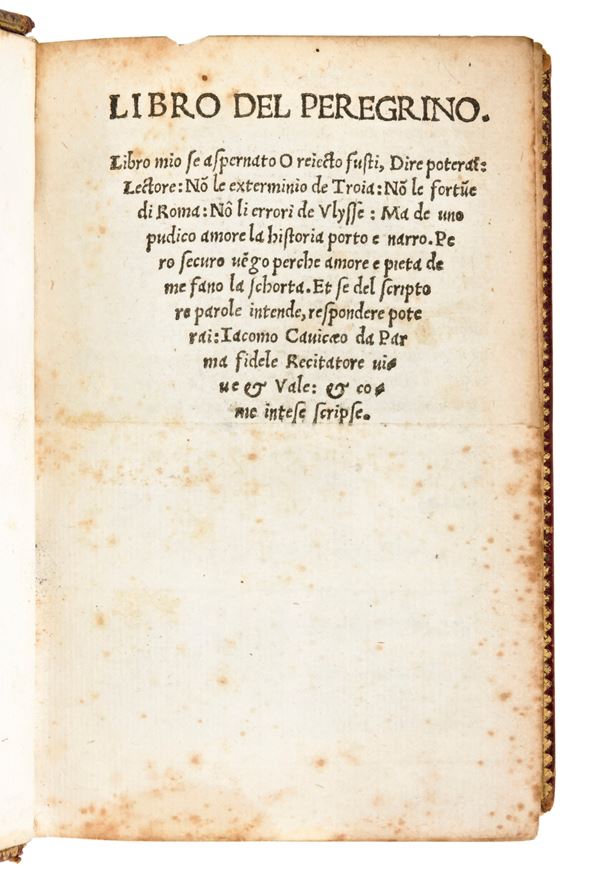 LIBRO DEL PEREGRINO.
Libro mio se aspernato O reiecto fusti, Dire poterai:
Lectore: Nõ le exterminio de Troia: Nõ le fortũe
di Roma: Nõ li errori de Vlysse : Ma de uno
pudico amore la historia porto e narro. Pe
ro securo uẽgo perche amore e pieta de
me fano la schorta. Et se del scripto
re parole intende, respondere pote
rai: Iacomo Cauicæo da Par
ma fidele Recitatore ui-
ue & Vale: & co-
me intese scripse.